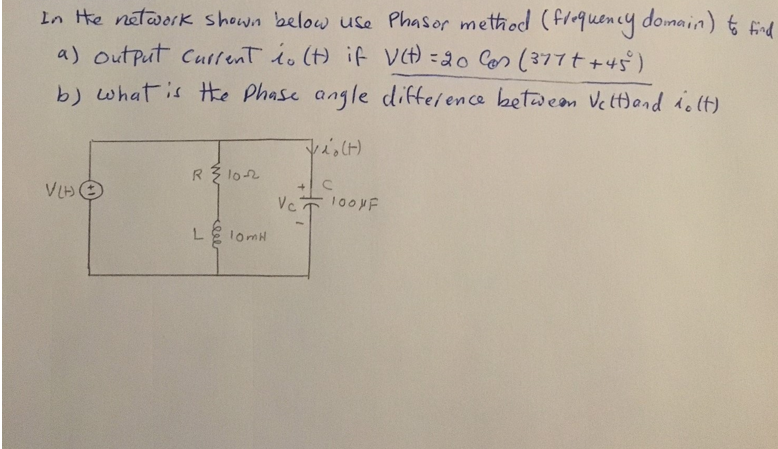 In the network shown below use Phasor method (frequency domain) to find
a) output current io(t) if V(t) = 20 Cos (377t + 45°)
b) what is the Phase angle difference between Vc(t) and io(t)
io(t)
R 10Ω
V(t) + - + C
Vc 100μF
-
L 10mH